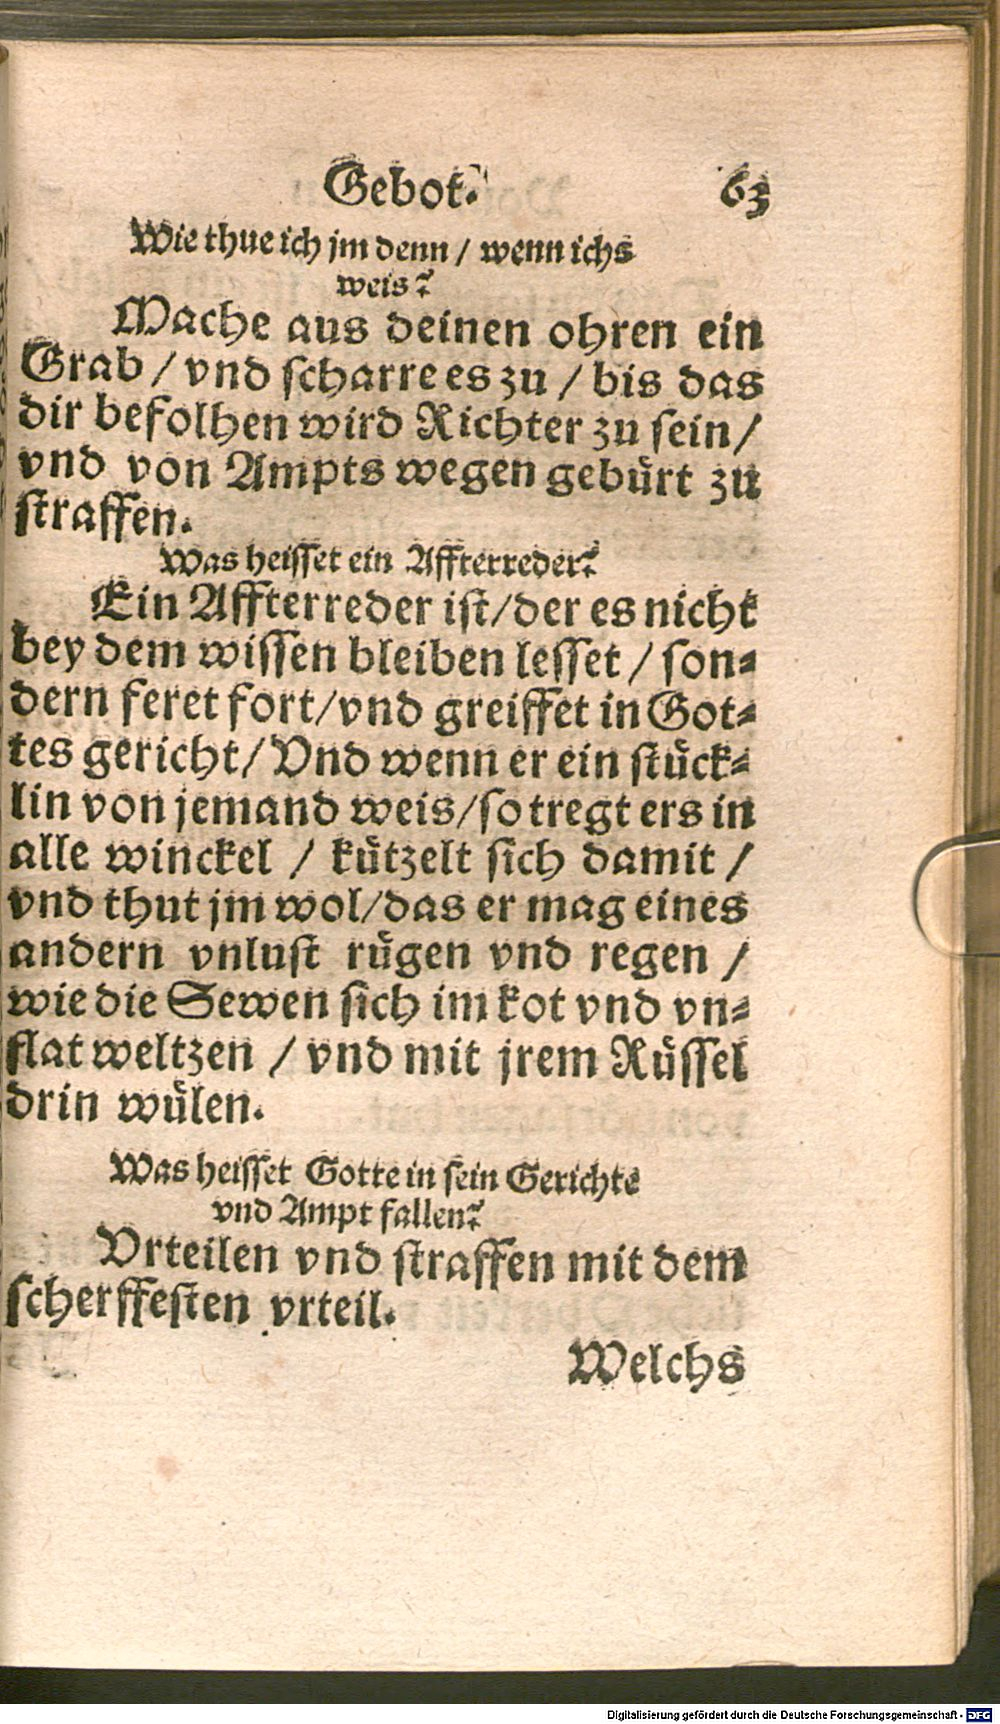 Gebot. 63
Wie thue ich jm denn / wenn ichs
weis?
Mache aus deinen ohren ein
Grab / vnd scharre es zu / bis das
dir befolhen wird Richter zu sein /
vnd von Ampts wegen gebuͤrt zu
straffen.
Was heisset ein Affterreder?
Ein Affterreder ist / der es nicht
bey dem wissen bleiben lesset / son-
dern feret fort / vnd greiffet in Got-
tes gericht / Vnd wenn er ein stuͤck-
lin von jemand weis / so tregt ers in
alle winckel / kuͤtzelt sich damit /
vnd thut jm wol / das er mag eines
andern vnlust ruͤgen vnd regen /
wie die Sewen sich im kot vnd vn-
flat weltzen / vnd mit jrem Ruͤssel
drin wuͤlen.
Was heisset Gotte in sein Gerichte
vnd Ampt fallen?
Vrteilen vnd straffen mit dem
scherffesten vrteil.
Welchs
Digitalisierung gefördert durch die Deutsche Forschungsgemeinschaft - DFG